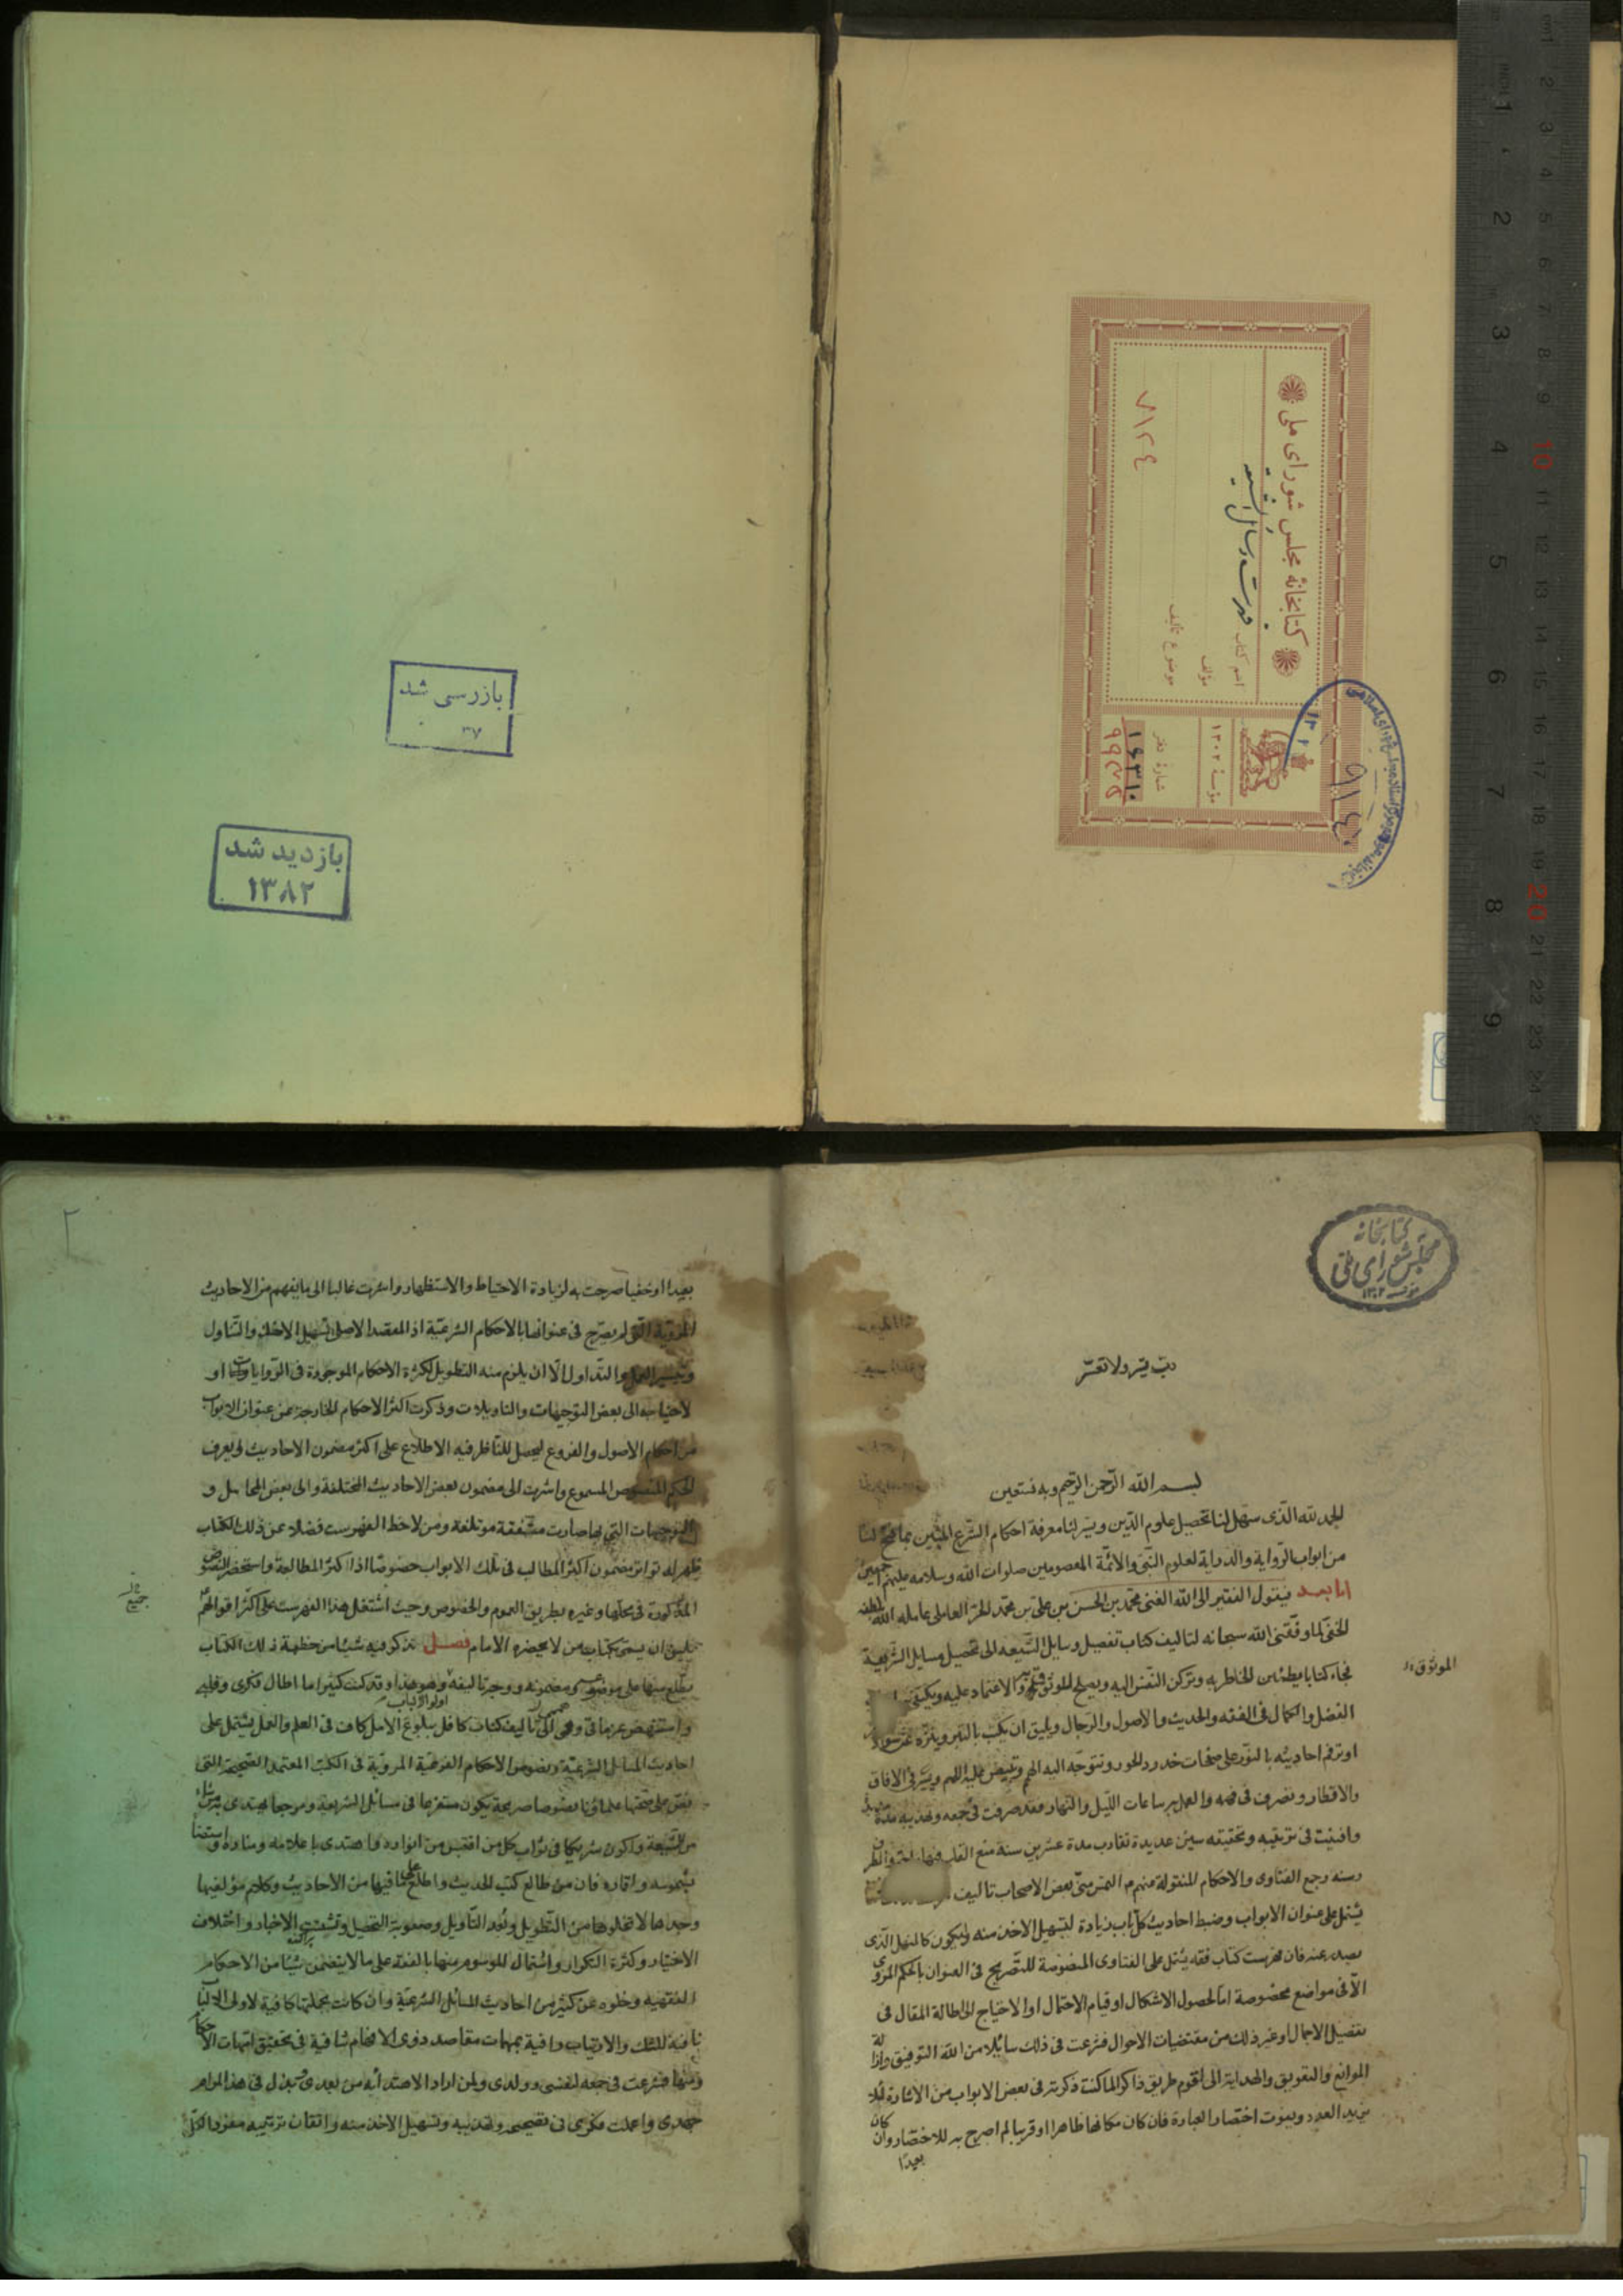 کتابخانهٔ مجلس شورای ملی
اسم کتاب فهرست وسائل الشیعه
مؤلف
موضوع تألیف
۷۱۲٤
مؤسسهٔ ۱۳۰۲
شمارهٔ دفتر
۱۶۳۱۰
بازرسی شد
۳۷
بازدید شد
۱۳۸۲
کتابخانه
مجلس شورای ملی
ربّ يسّر ولا تعسّر
بسم الله الرّحمن الرّحيم وبه نستعين
الحمد لله الّذى سهّل لنا تحصيل علوم الدّين ويسّر لنا معرفة احكام الشّرع المبين بما فتح لنا
من ابواب الرّواية والدراية لعلوم النّبى والائمّة المعصومين صلوات الله وسلامه عليهم اجمعين
امّا بعد فيقول الفقير الى الله الغنى محمّد بن الحسن بن علىّ بن محمّد الحرّ العاملى عامله الله بلطفه
الخفى لما وفّقنى الله سبحانه لتاليف كتاب تفصيل وسايل الشّيعه الى تحصيل مسايل الشّريعة
فجاء كتابا يطمئن الخاطر به وتركن النّفس اليه ويصلح للوثوق والاعتماد عليه
الفضل والكمال فى الفقه والحديث والاصول والرّجال ويليق ان يكتب بالتبر
او ترقم احاديثه بالنور على صفحات خدود الحور وتتوجّه اليه الهمم ويسير فى الافاق
والاقطار وتصرف فى فهمه والعمل به ساعات اللّيل والنّهار فقد صرفت فى جمعه وتهذيبه مدّة
وافنيت فى ترتيبه وتحقيقه سنين عديدة تقارب مدة عشرين سنة
وجمع الفتاوى والاحكام المنقولة منهم ع التمس منّى بعض الاصحاب تاليف
يشتمل على عنوان الابواب وضبط احاديث كلّ باب زيادة لتسهيل الاخذ منه وليكون كالمنهل الّذى
يصدر عنه فان فهرست كتاب فقه يشتمل على الفتاوى المنصوصة للتّصريح فى العنوان بالحكم المروى
الّا فى مواضع مخصوصة امّا لحصول الاشكال او قيام الاحتمال او الاحتياج الى اطالة المقال فى
تفصيل الاجمال او غير ذلك من مقتضيات الاحوال فشرعت فى ذلك سائلا من الله التوفيق وازالة
الموانع والتعويق والهداية الى اقوم طريق ذاكرا لما كنت ذكرته فى بعض الابواب من الاشارة لئلا
يزيد العدد ويفوت اختصار العبارة فان كان مكانها ظاهرا او قريبا لم اصرح به للاختصار وان كان
بعيدًا
الموثوق
۲
بعيدا او خفيا صرحت به لزيادة الاحتياط والاستظهار واشرت غالبا الى ما يفهم من الاحاديث
المرويّة التى لم يصرّح فى عنوانها بالاحكام الشرعيّة اذ المقصد الاصلى تسهيل الاخذ والتّناول
وتيسير العمل والتداول الّا ان يلزم منه التطويل لكثرة الاحكام الموجودة فى الرّوايات او
لاحتياجه الى بعض التوجيهات والتاويلات وذكرت اكثر الاحكام الخارجة عن عنوان الابواب
من احكام الاصول والفروع ليحصل للنّاظر فيه الاطلاع على اكثر مضمون الاحاديث ويعرف
الحكم المنصوص المسموع واشرت الى مضمون بعض الاحاديث المختلفة والى بعض المحامل و
التوجيهات التى بها صارت متّفقة مؤتلفة ومن لاحظ الفهرست فضلا عن ذلك الكتاب
ظهر له تواتر مضمون اكثر المطالب فى تلك الابواب خصوصًا اذا اكثر المطالعة واستحضر النصوص
المذكورة فى محلّها وغيره بطريق العموم والخصوص وحيث اشتمل هذا الفهرست على اكثر اقوالهم
يليق ان يسمّى بكتاب من لا يحضره الامام فصل نذكر فيه شيئا من خطبة ذلك الكتاب
يطّلع منها على موضوعه ومضمونه ووجه تاليفه وهو هذا وقد كنت كثيرا ما اطال فكرى وقلبه
واستنهض عزمائى وهمتى الى تاليف كتاب كافل ببلوغ الامل كاف فى العلم والعمل يشتمل على
احاديث المسائل الشرعيّة ونصوص الاحكام الفرعيّة المروّية فى الكتب المعتمدة الصحيحة التى
نصّ على صحّتها علماؤنا نصوصا صريحة يكون مفزعا فى مسائل الشريعة ومرجعا يهتدى به من شاء
من الشّيعة واكون شريكا فى ثواب كلّ من اقتبس من انواره واهتدى باعلامه ومناره واستضاء
بشموسه واقماره فان من طالع كتب الحديث واطلع على ما فيها من الاحاديث وكلام مؤلفيها
وجدها لا تخلو من التّطويل وبُعد التّاويل وصعوبة التحصيل وتشتت الاخبار واختلاف
الاختيار وكثرة التكرار واشتمال الموسوم منها بالفقه على ما لا يتضمن شيئا من الاحكام
الفقهيه وخلوه عن كثير من احاديث المسائل الشرعيّة وان كانت بجملتها كافية لاولى الالباب
نافية للشك والارتياب وافية بمهمات مقاصد ذوى الافهام شافية فى تحقيق امّهات الاحكام
فشرعت فى جمعه لنفسى وولدى ولمن اراد الاهتداء به من بعدى وبذل فى هذا المرام
جهدى واعملت فكرى فى تصحيحه وتهذيبه وتسهيل الاخذ منه واتقان ترتيبه